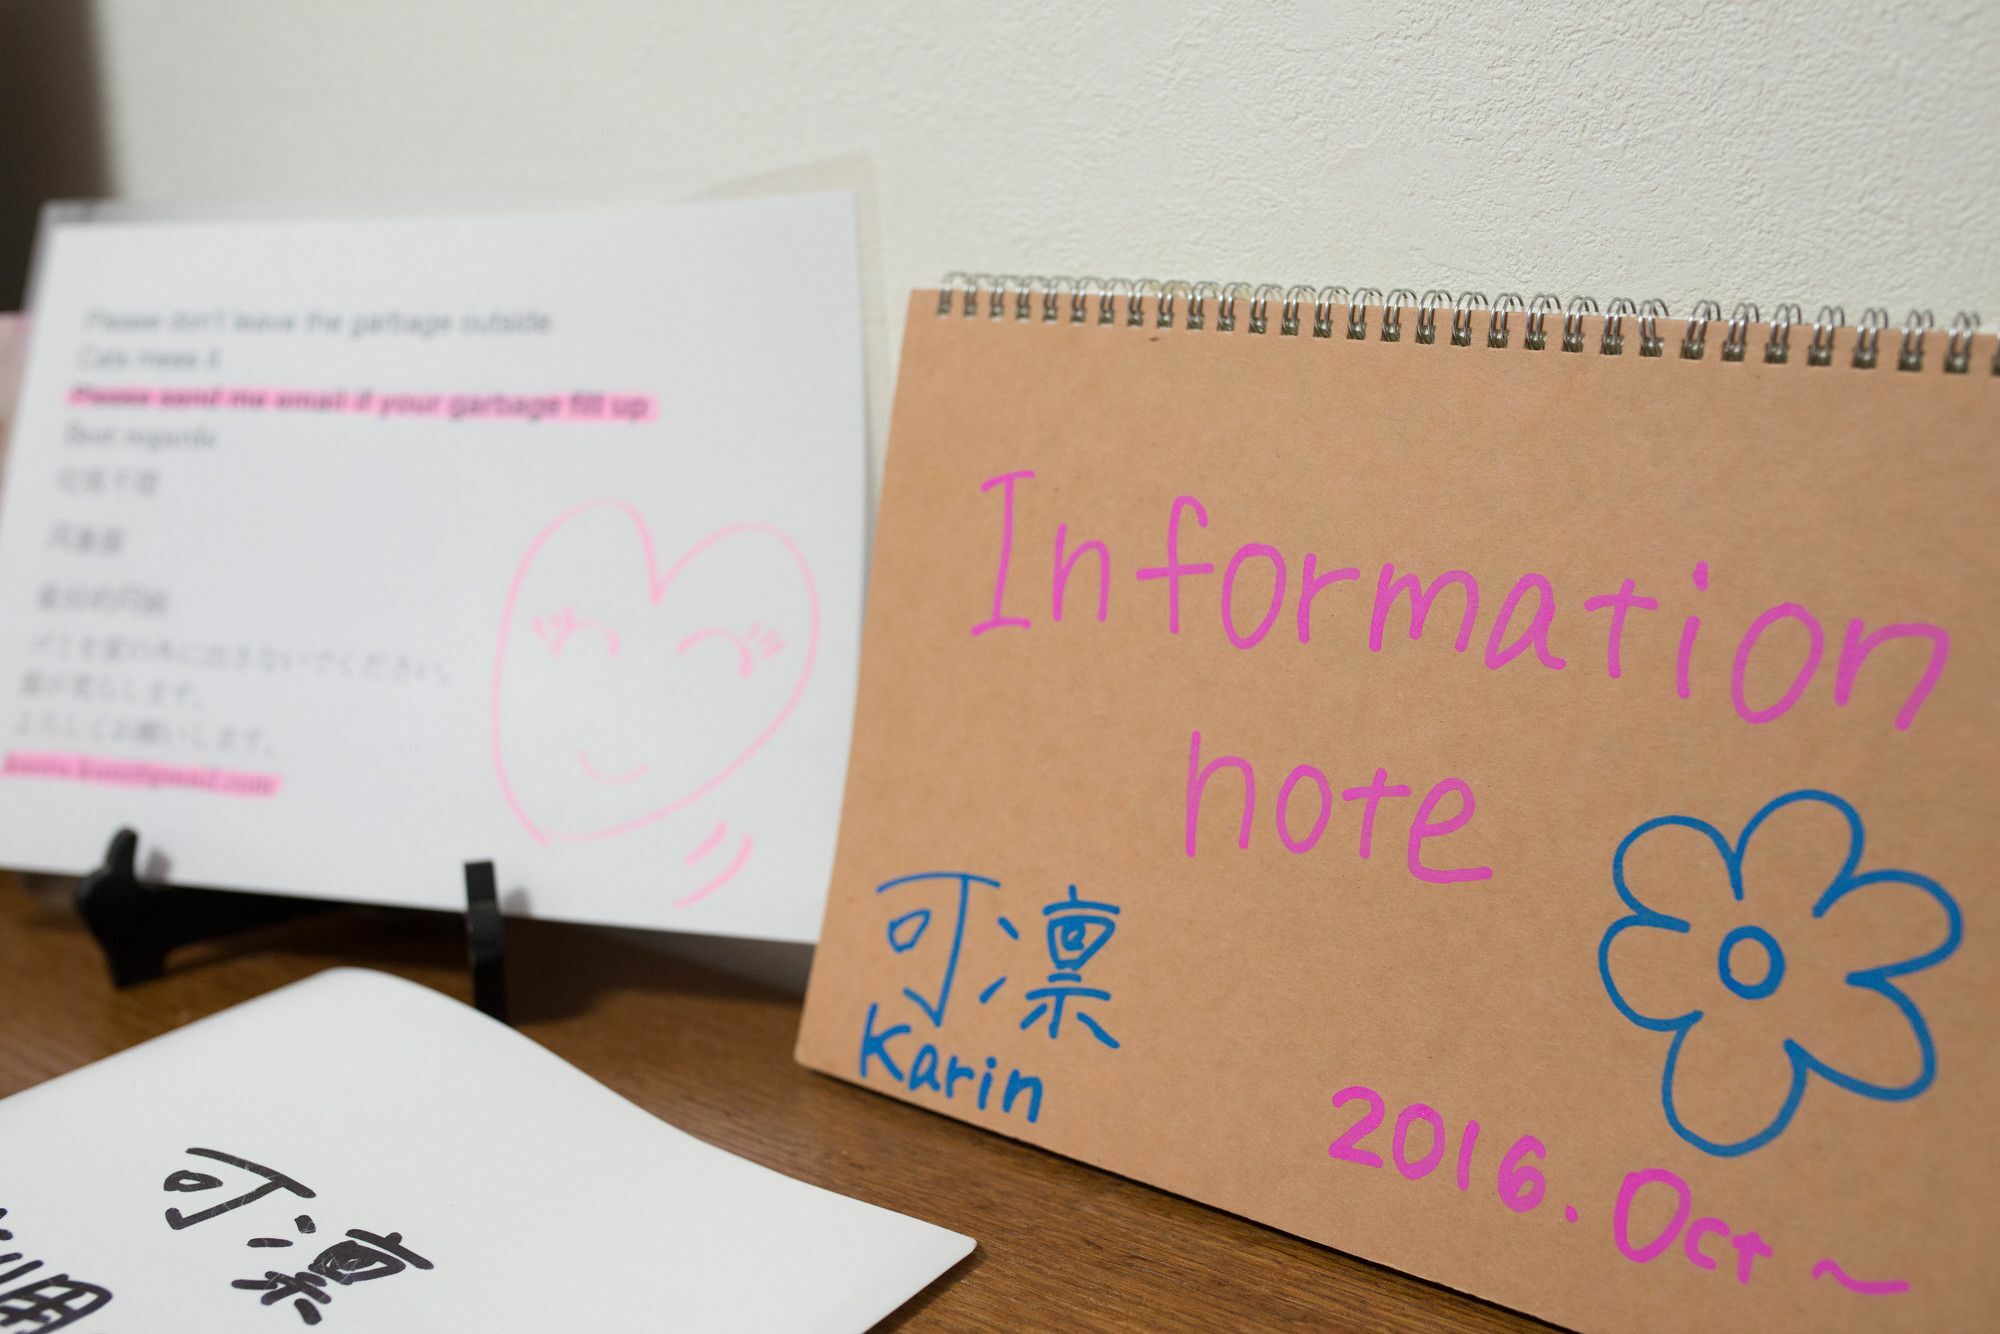 Please don't leave the garbage outside.
Cats mess it
Please send me email if your garbage fill up.
Best regards
ゴミを家の外に出さないでください。
猫が荒らします。
よろしくお願いします。
Information
note
可凛
Karin
2016. Oct ~
可凛
用